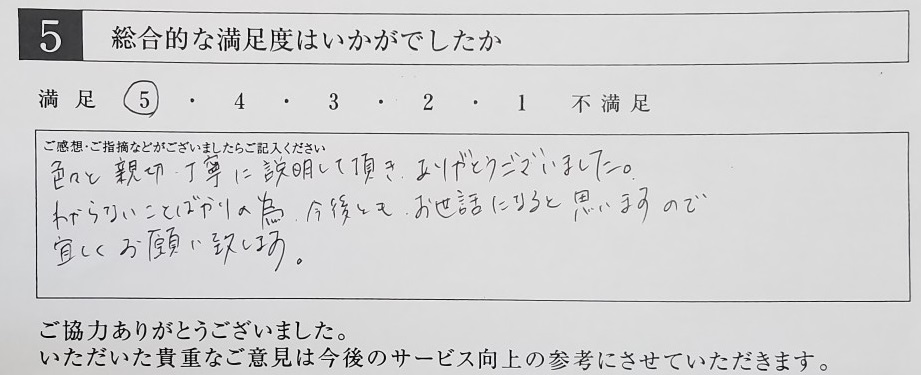 5 総合的な満足度はいかがでしたか
満足 5 ・ 4 ・ 3 ・ 2 ・ 1 不満足
ご感想・ご指摘などがございましたらご記入ください
色々と親切、丁寧に説明して頂き、ありがとうございました。
わからないことばかりの為、今後とも、お世話になると思いますので
宜しくお願い致します。
ご協力ありがとうございました。
いただいた貴重なご意見は今後のサービス向上の参考にさせていただきます。